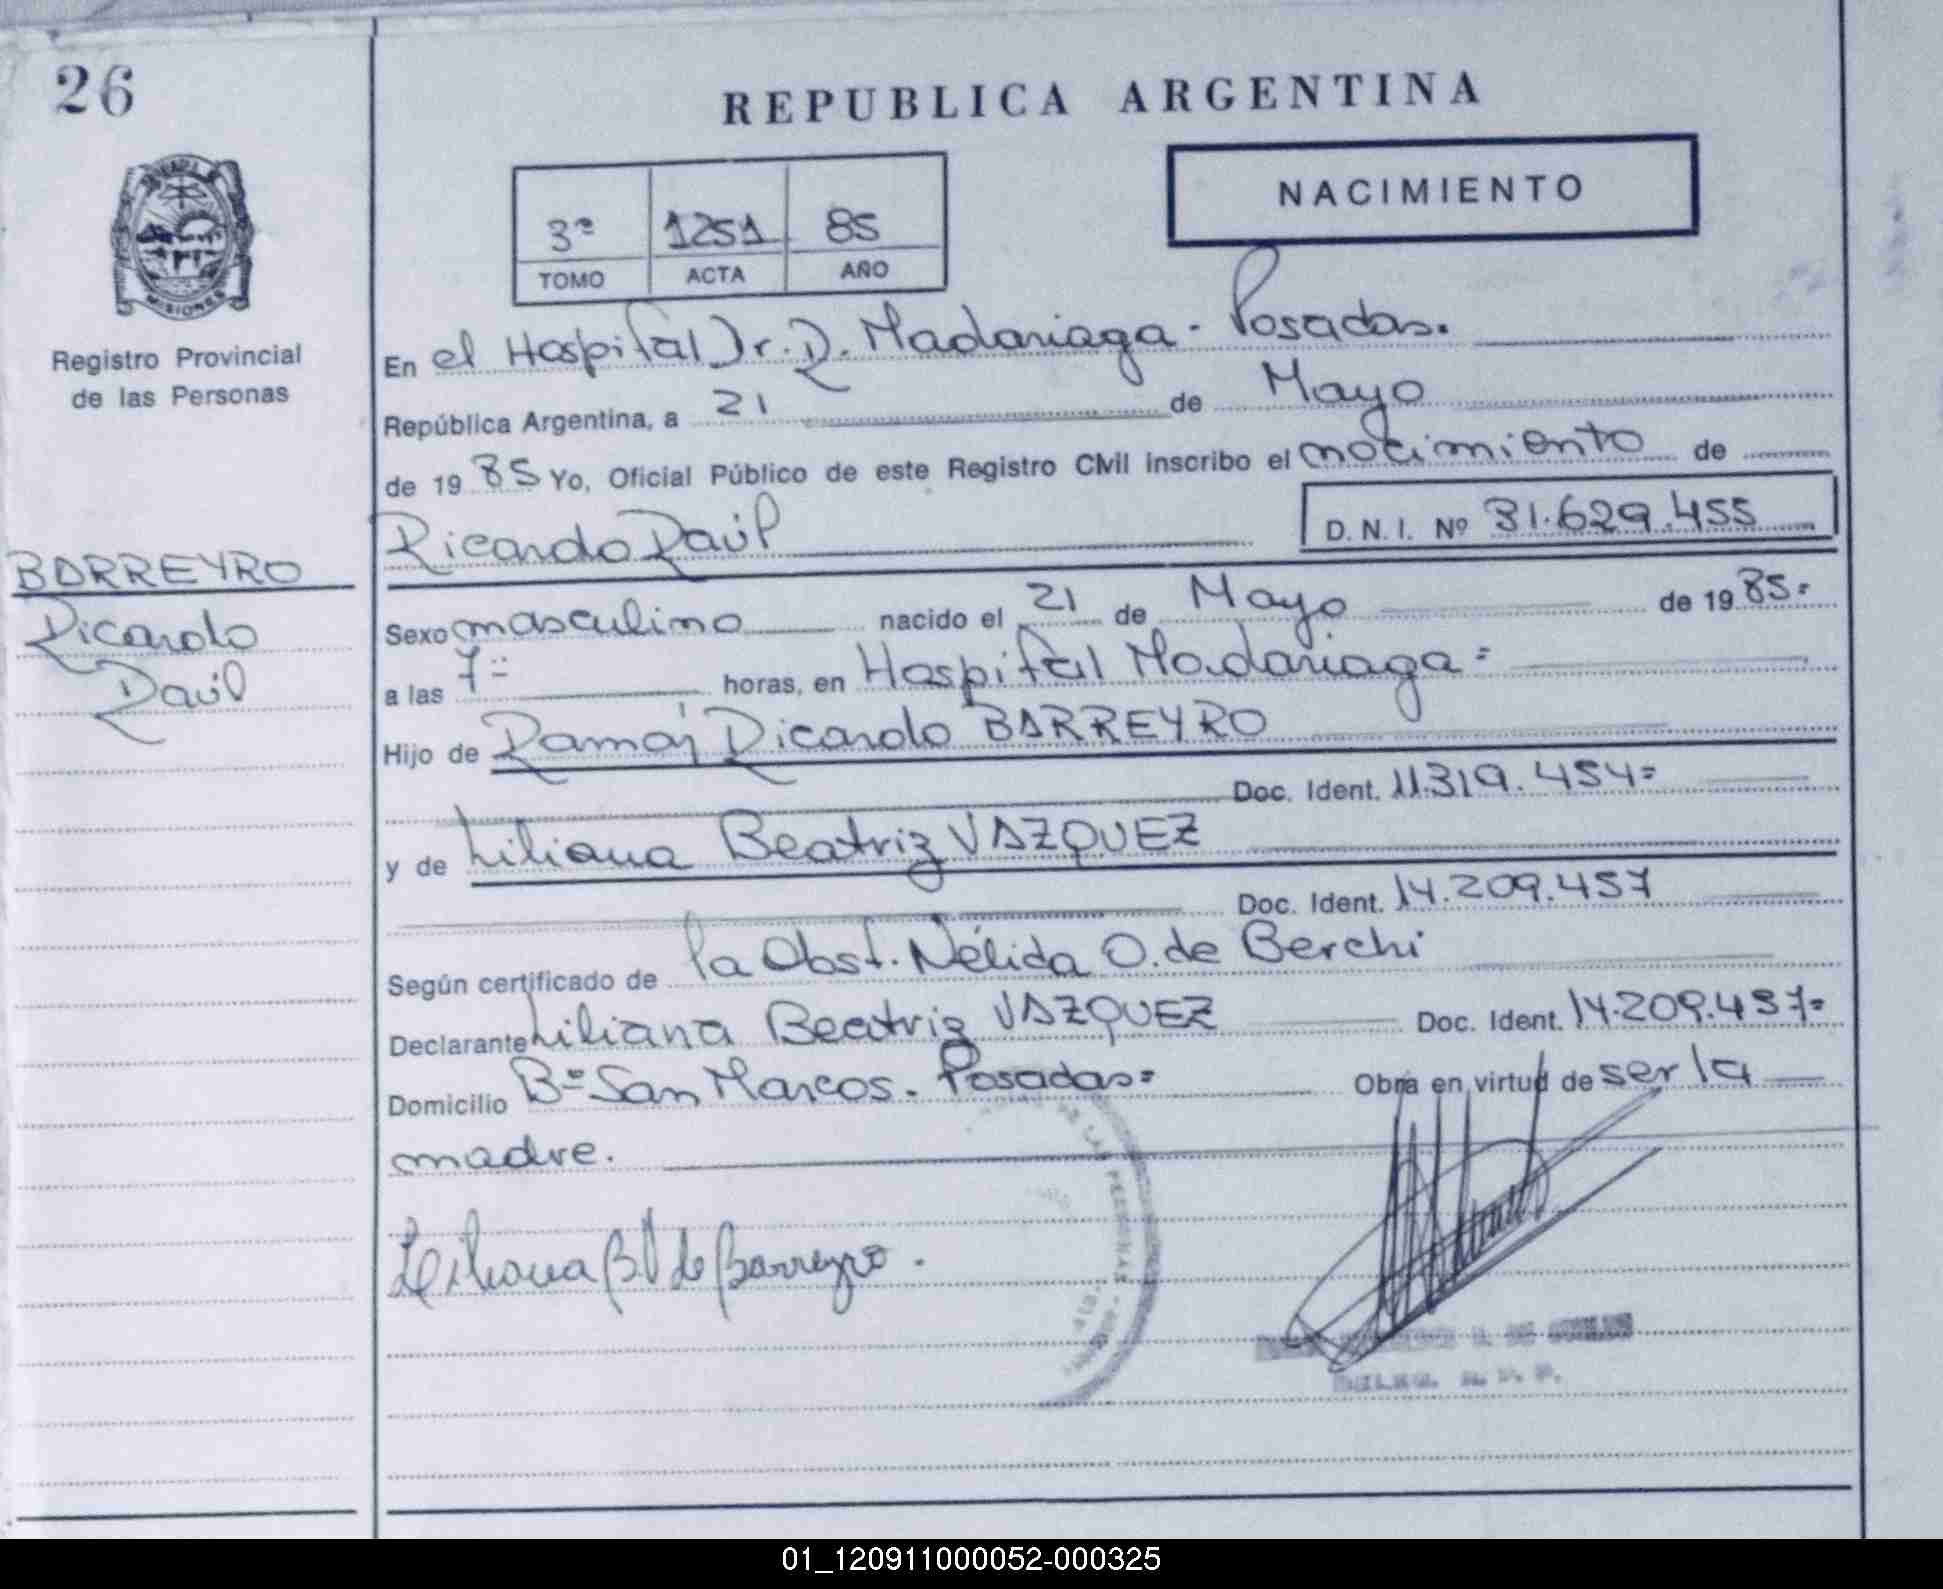 26
REPUBLICA ARGENTINA
MISIONES
Registro Provincial
de las Personas
3º 1251 85
TOMO ACTA AÑO
NACIMIENTO
En el Hospital Dr. R. Madariaga - Posadas.
República Argentina, a 21 de Mayo
de 1985 Yo, Oficial Público de este Registro Civil inscribo el nacimiento de
Ricardo Raúl D. N. I. Nº 31.629.455
BARREYRO
Ricardo
Raúl
Sexo masculino nacido el 21 de Mayo de 1985=
a las 7= horas, en Hospital Madariaga=
Hijo de Ramón Ricardo BARREYRO
Doc. Ident. 11.319.454=
y de Liliana Beatriz VAZQUEZ
Doc. Ident. 14.209.457
Según certificado de la Obst. Nélida O. de Berchi
Declarante Liliana Beatriz VAZQUEZ Doc. Ident. 14.209.457=
Domicilio Bº San Marcos. Posadas= Obra en virtud de ser la
madre.
Liliana B V de Barreyro.
DE LAS PERSONAS
01_120911000052-000325